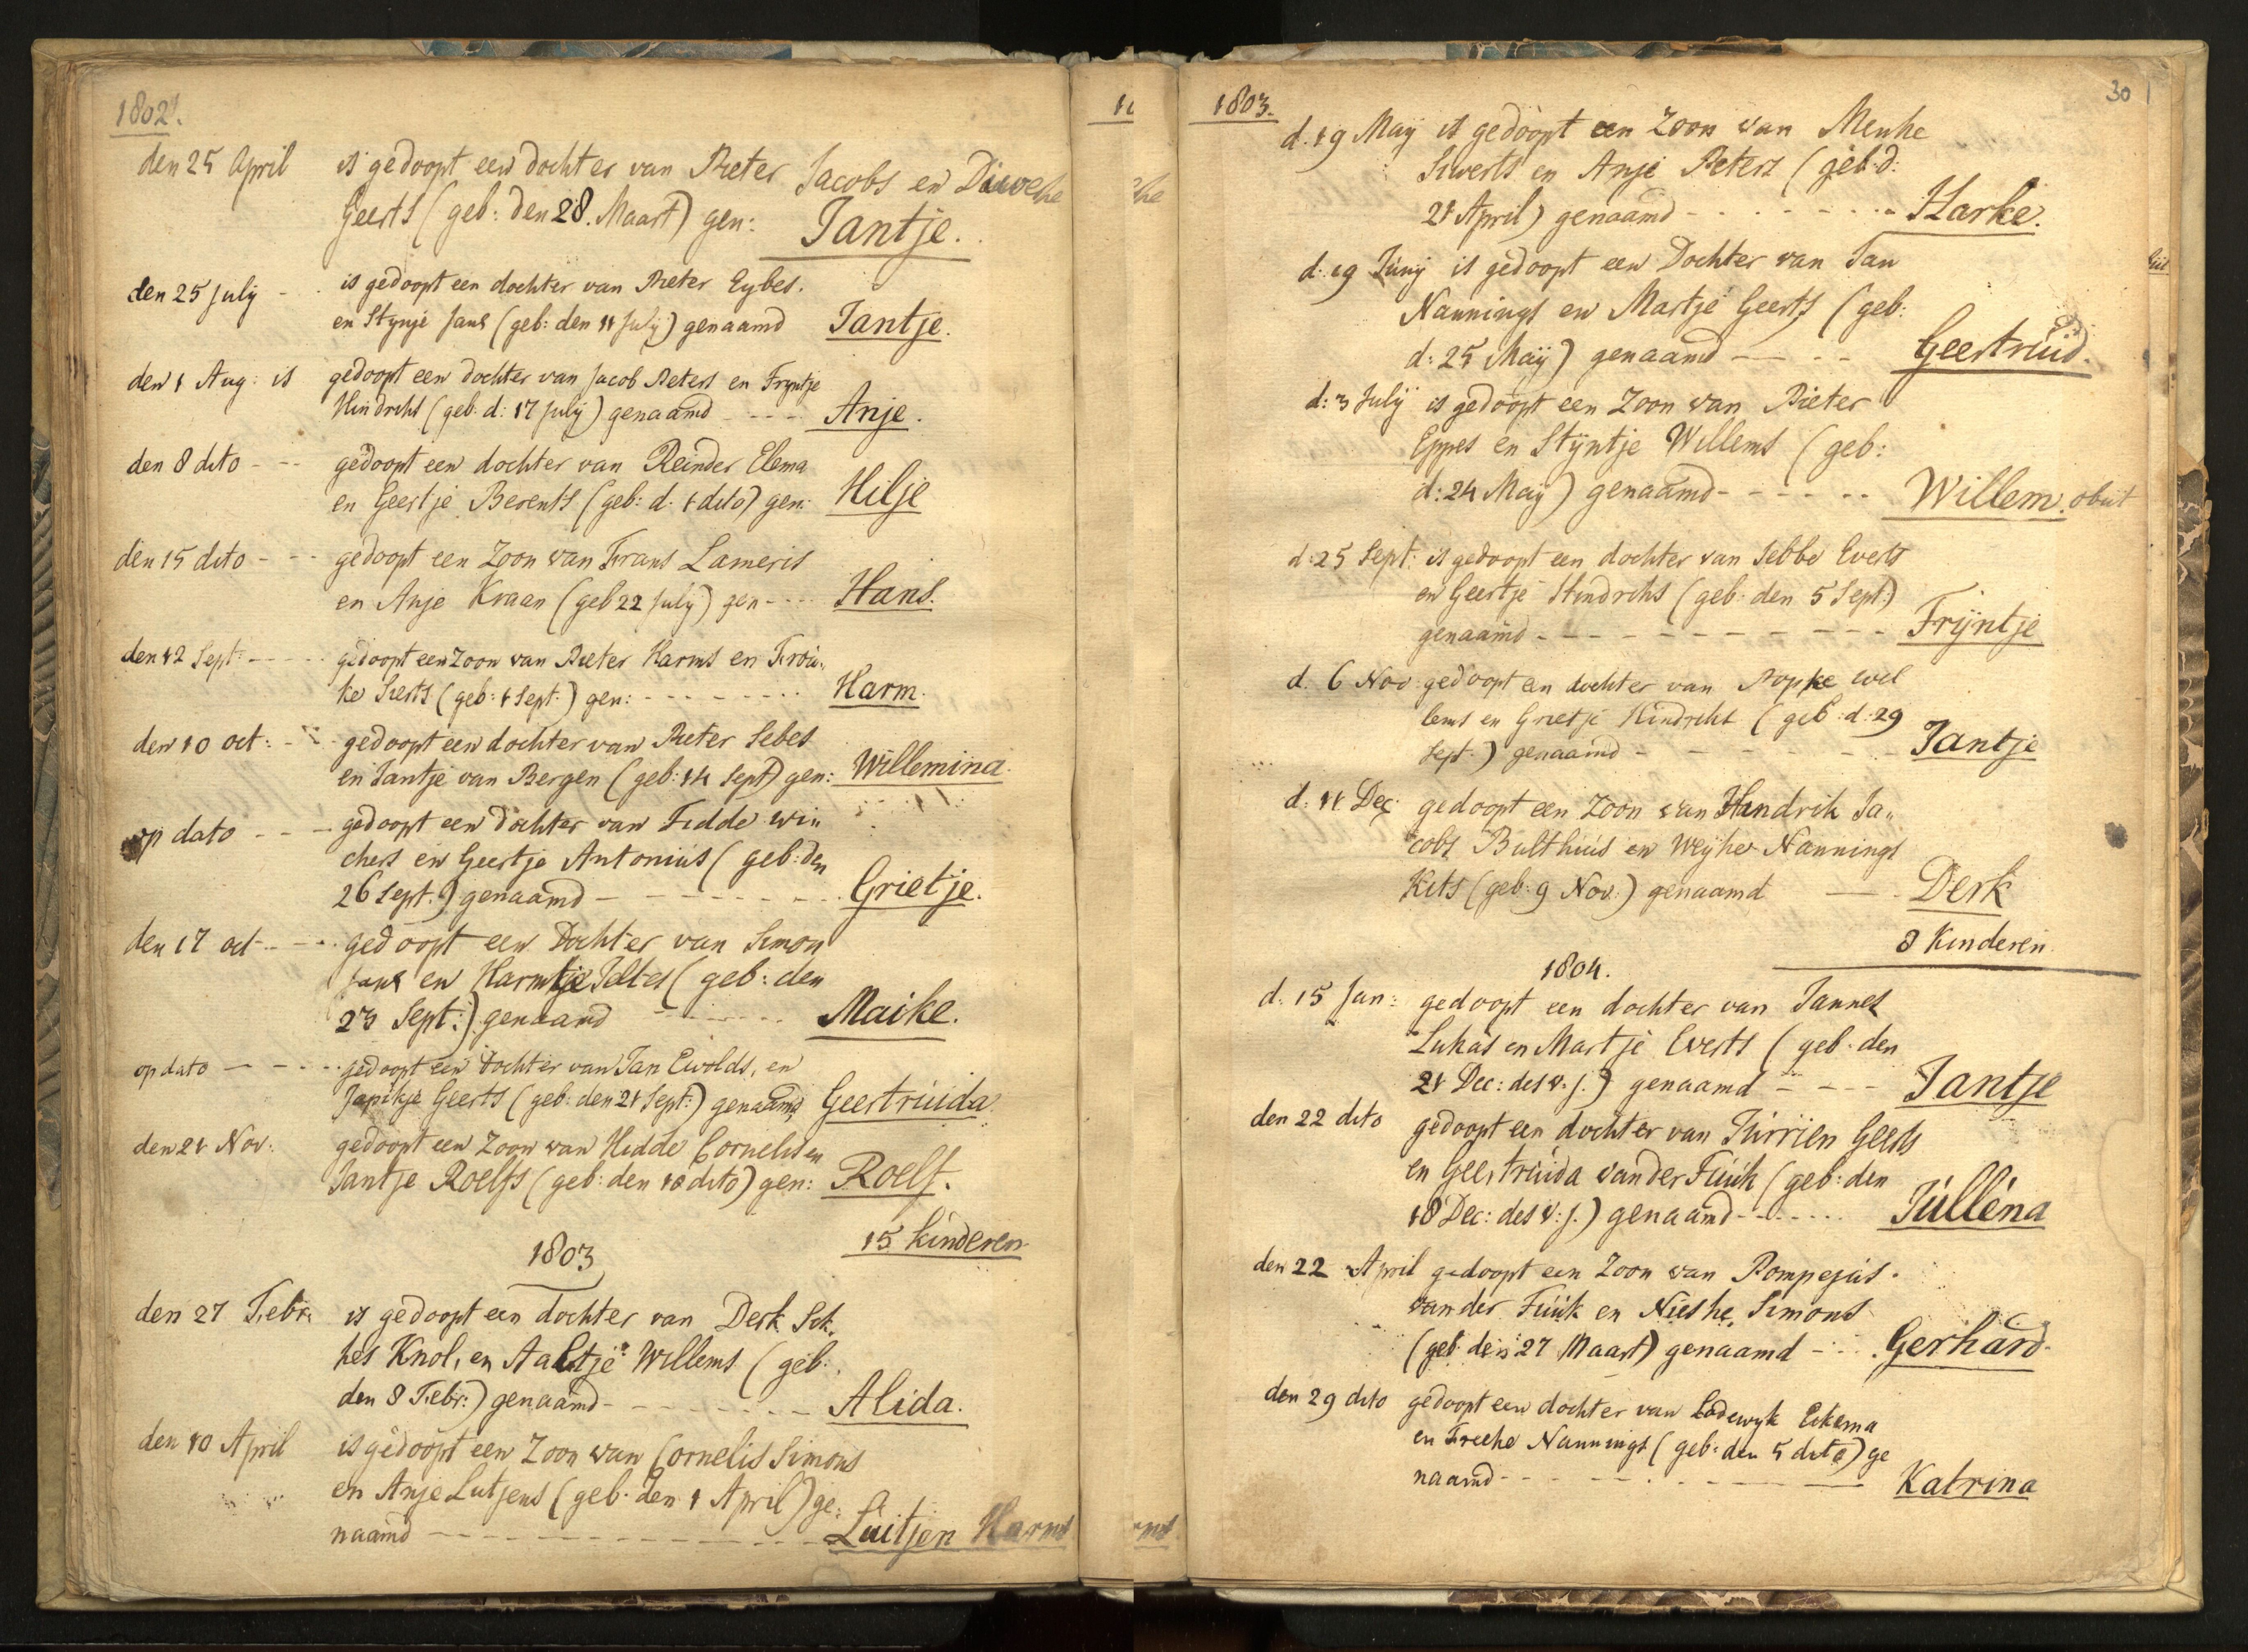 1802.
den 25 April is gedoopt een dochter van Pieter Jacobs en Diewehe
Geerts (geb: den 28. Maart) gen: Jantje.
den 25 July - . is gedoopt een dochter van Pieter Eybes.
en Stynje Jans (geb: den 11 July) genaamd Jantje.
den 1 Aug: is gedoopt een dochter van Jacob Pieters en Fryntje
Hindrehs (geb: d: 17 July) genaamd - - - - Anje.
den 8 dito - - - gedoopt een dochter van Reinder Elema
en Geertje Berents (geb: d: 1 dito) gen: Hilje
den 15 dito - - - gedoopt een Zoon van Frans Lameris
en Anje Kraan (geb 22 July) gen - - - - Hans.
den 12 Sept: - - - - gedoopt een Zoon van Pieter Harms en Froú„
ke Sierts (geb: 1 Sept:) gen: - - - - - - - - Harm.
den 10 oct: - - - gedoopt een dochter van Pieter Sebes
en Jantje van Bergen (geb: 14 Sept) gen: Willemina.
op dato - - - gedoopt een dochter van Fidde Wi„
chers en Geertje Antoniús (geb: den
26 Sept.) genaamd - - - - - - - - Grietje.
den 17 oct - - - - gedoopt een Dochter van Simon
Jans en Harmtje Jeltes (geb: den
23 Sept:) genaamd - - - - - - Maike.
op dato - - - - gedoopt een dochter van Jan Ewolds, en
Japikje Geerts (geb: den 21 Sept:) genaamd Geertrúida.
den 21 Nov: gedoopt een Zoon van Hidde Cornelis en
Jantje Roelfs (geb: den 10 dito) gen: Roelf.
15 kinderen
1803
den 27 Febr: is gedoopt een dochter van Derk Sik„
hes Knol, en Aaltje Willems (geb:
den 8 Febr:) genaamd - - - - - - - - Alida.
den 10 April is gedoopt een Zoon van Cornelis Simons
en Anje Lutjens (geb. den 1 April) ge:
naamd - - - - - - - - - - - - Luitjen Harms
1803.
30
d. 19 Maÿ is gedoopt een Zoon van Menhe
Siwerts en Anje Pieters (geb: d:
21 April) genaamd - - - - - - - Harke.
d: 19 Júnÿ is gedoopt een Dochter van Jan
Nannings en Martje Geerts (geb:
d: 25 Maÿ) genaamd - - - - Geertrúid.
d: 3 Júlÿ is gedoopt een Zoon van Pieter
Eppes en Stÿntje Willems (geb:
d: 24 Maÿ) genaamd - - - - - - Willem. obiit
d: 25 Sept: is gedoopt een dochter van Sebbe Everts
en Geertje Hindrehs (geb: den 5 Sept:)
genaamd - - - - - - - - - - - - Frÿntje
d. 6 Nov: gedoopt een dochter van Popke Wil
lems en Grietje Hindrehs (geb: d: 29
Sept:) genaamd - - - - - - - Jantje
d: 11 Dec: gedoopt een Zoon van Hindrik Ja„
cobs Bulthúis en Weÿhe Nannings
Kits (geb: 9 Nov:) genaamd - - - Derk
8 Kinderen.
1804.
d. 15 Jan: gedoopt een dochter van Jannes
Lukas en Martje Everts (geb. den
21 Dec: des v. j.) genaamd - - - - - Jantje
den 22 dito gedoopt een dochter van Júrrien Geerts
en Geertrúida van der Fúúk (geb: den
18 Dec: des v: j.) genaamd - - - - - - Júlléna
den 22 April gedoopt een Zoon van Pompejús.
van der Fúúk en Nieshe Simons
(geb: den 27 Maart) genaamd - - - Gerhard.
den 29 dito gedoopt een dochter van Lodewyk Eikema
en Freehe Nannings (geb: den 5 dito) ge
naamd - - - - - - - - - - - Katrina